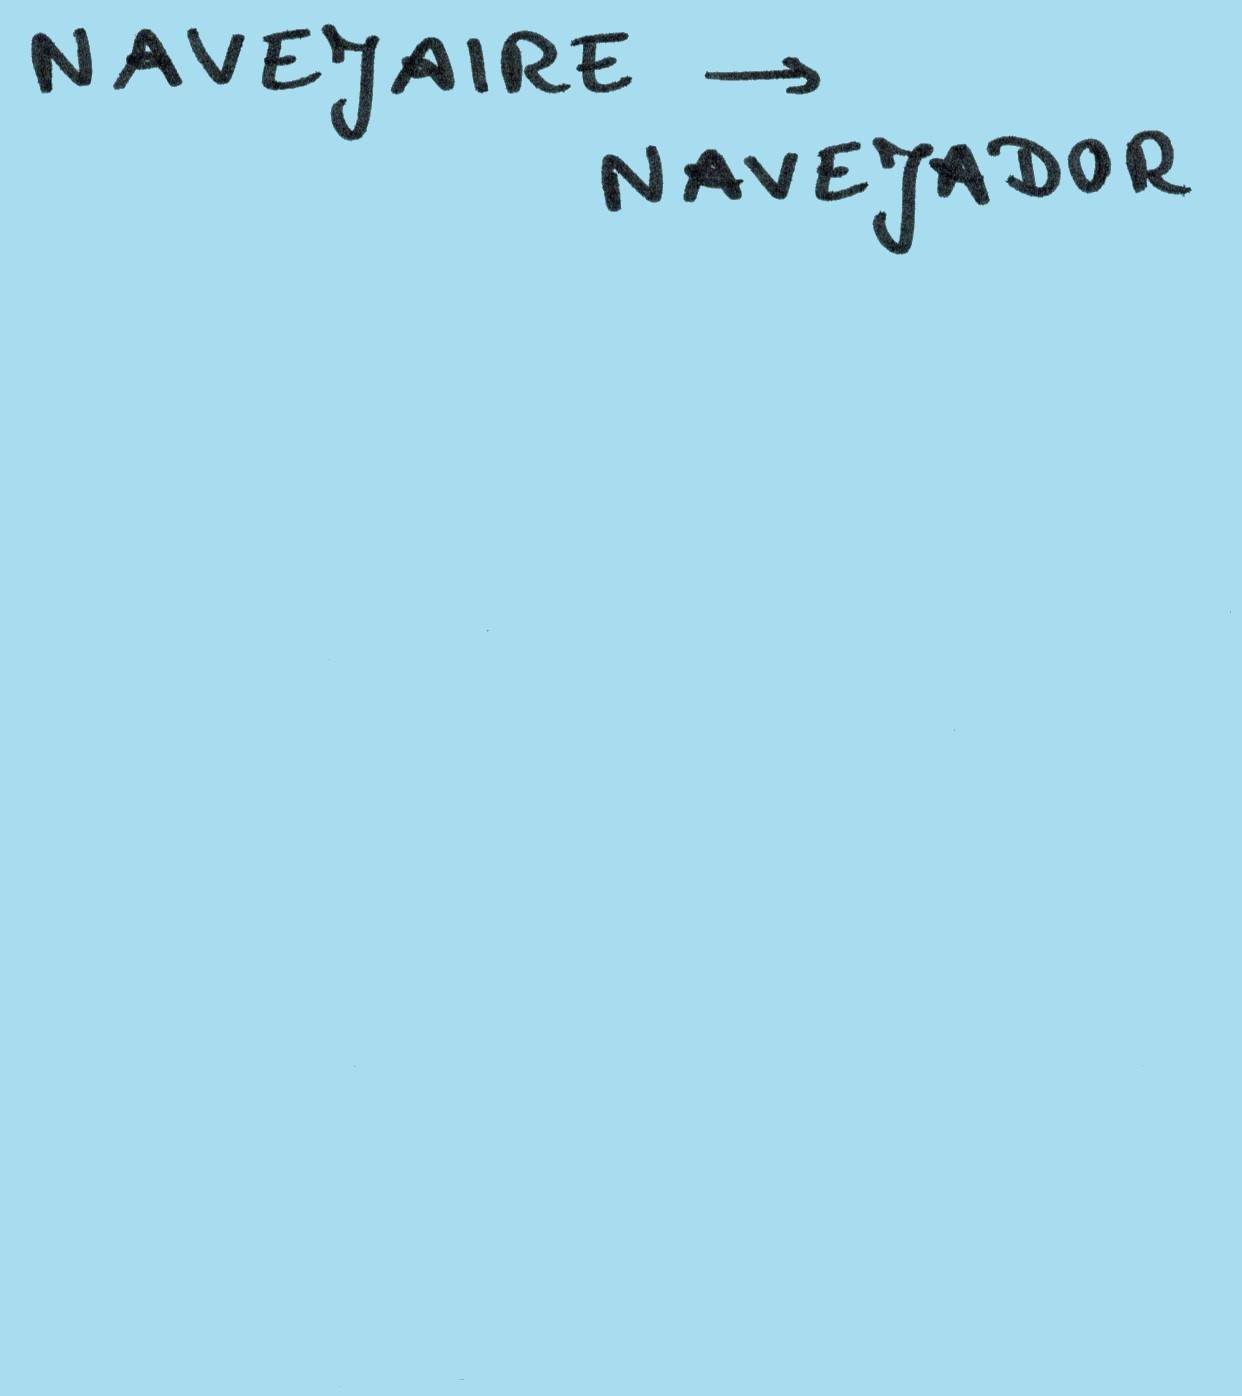 NAVEJAIRE →
NAVEJADOR